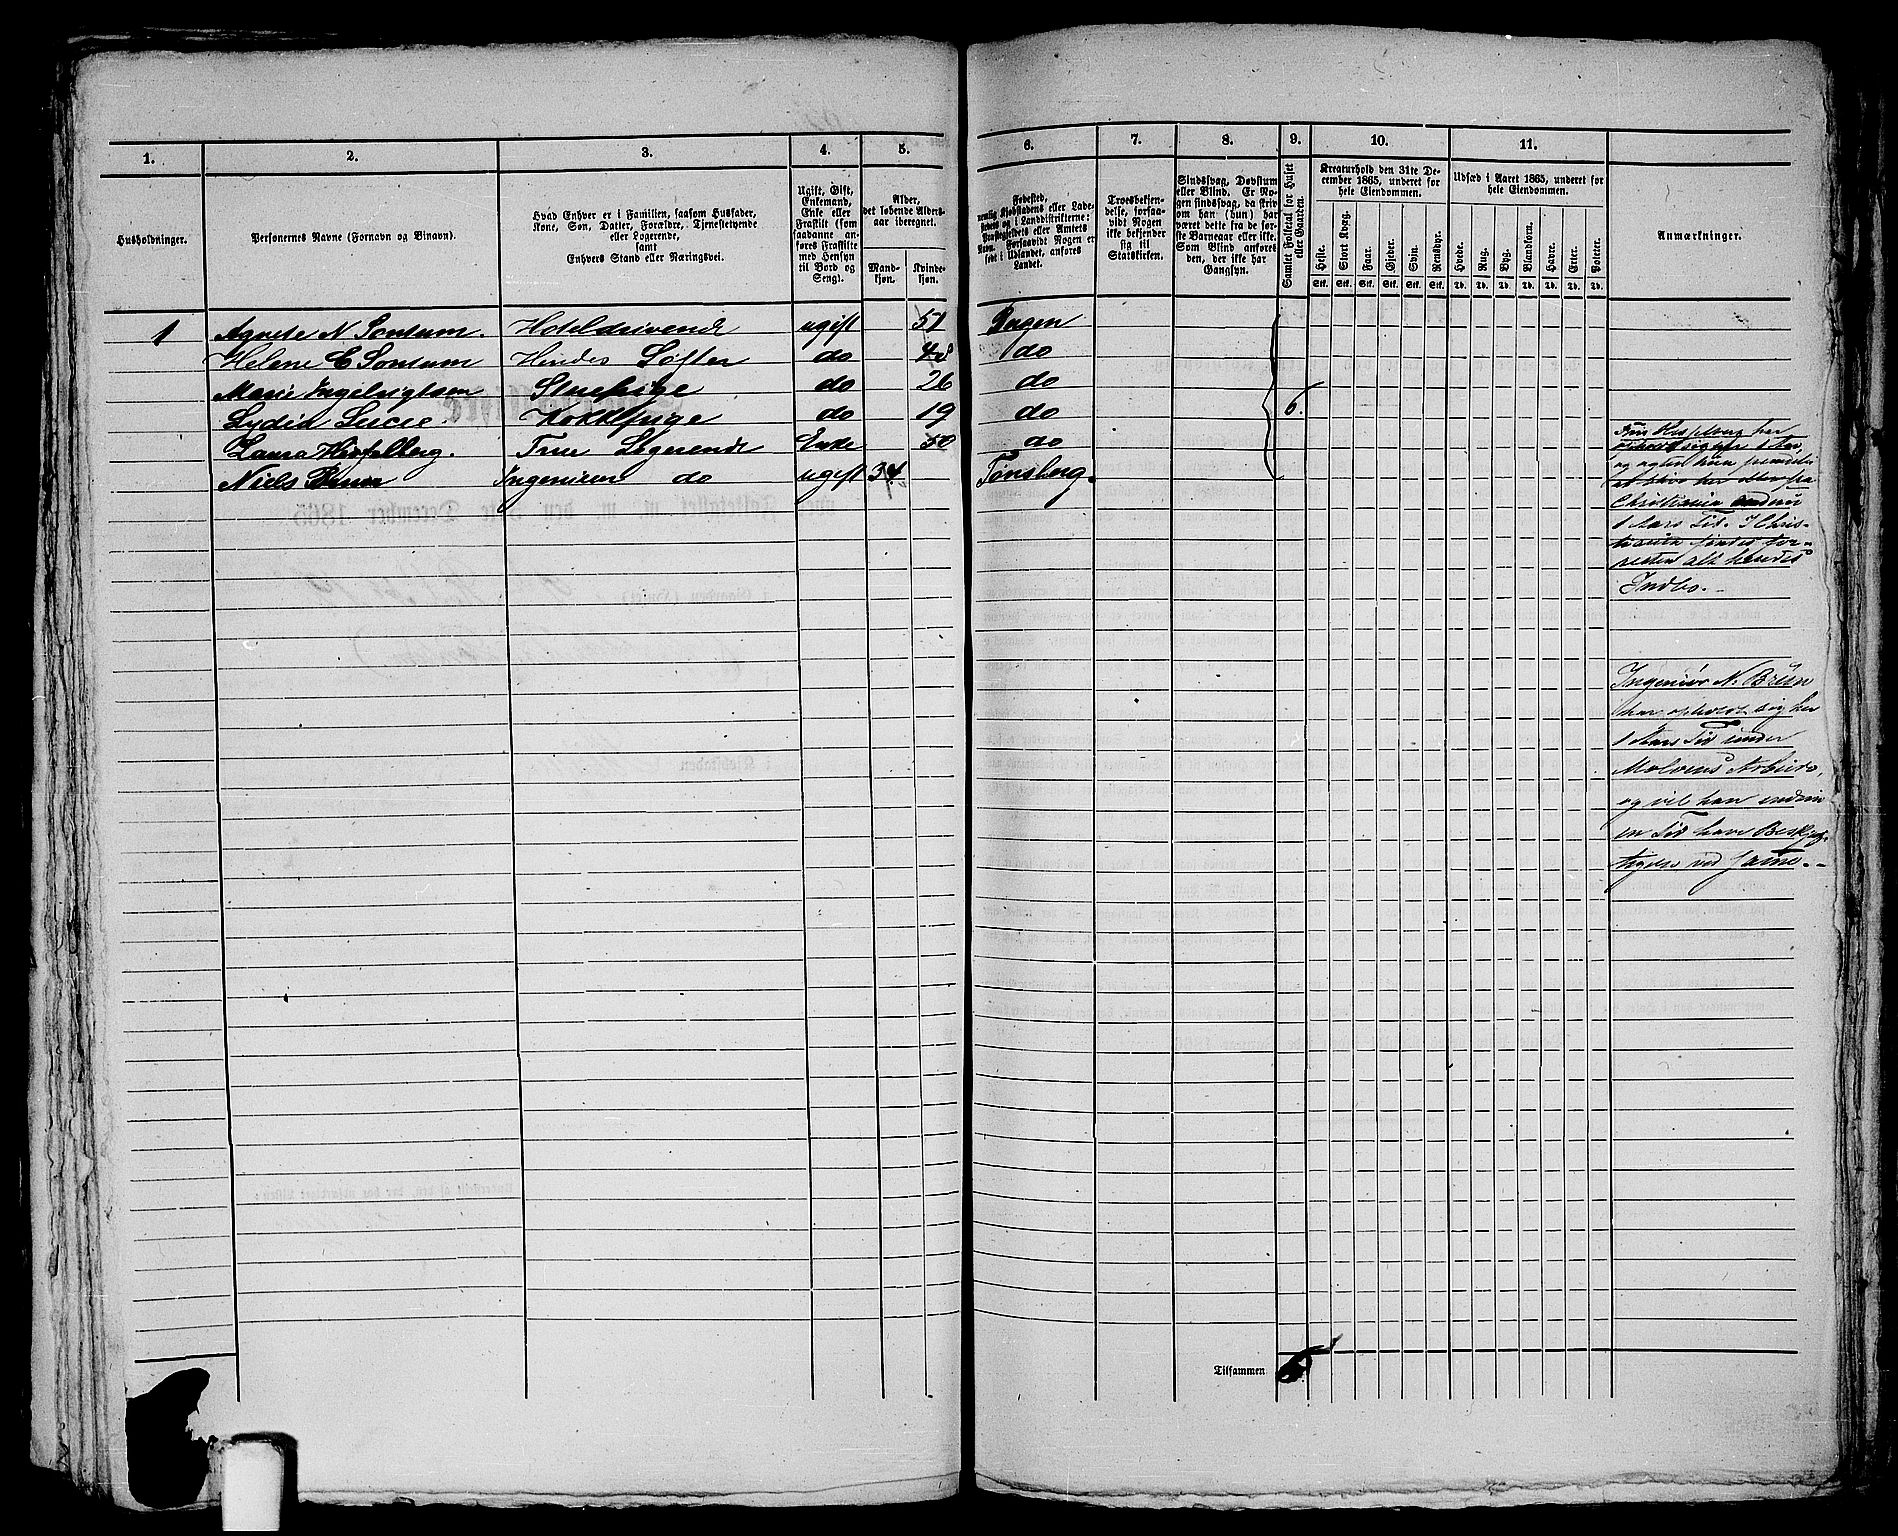 1.
2.
3.
4.
5.
6.
7.
8.
9.
10.
11.
Husholdninger.
Personernes Navne (Fornavn og Binavn).
Hvad Enhver er i Familien, saasom Husfader,
Kone, Søn, Datter, Forældre, Tjenestetyende
eller Logerende,
samt
Enhvers Stand eller Næringsvei.
Ugift, Gift,
Enkemand,
Enke eller
Fraskilt (som
saadanne an-
føres Fraskilte
med Hensyn
til Bord og
Seng).
Alder,
det løbende Alders-
aar iberegnet.
Mand-
kjøn.
Kvinde-
kjøn.
Fødested,
nemlig Kjøbstadens eller Lade-
stedets og i Landdistrikterne:
Præstegjeldets eller Amtets
Navn. Forsaavidt Nogen er
født i Udlandet, anføres
Landet.
Troesbekjen-
delse, forsaa-
vidt Nogen
ikke bekjender
sig til
Statskirken.
Sindssvag, Døvstum
eller Blind. Er No-
gen sindssvag, da skriv
om han (hun) har
været dette fra de før-
ste Barneaar eller ikke.
Som Blind anføres
den, der ikke har
Gangsyn.
Samlet Folketal for Huset
eller Gaarden.
Kreaturhold den 31te De-
cember 1865, underet for
hele Eiendommen.
Heste. Stort Kvæg. Faar. Gjeder. Svin. Rensdyr.
Stk. Stk. Stk. Stk. Stk. Stk.
Udsæd i Aaret 1865, underet for
hele Eiendommen.
Hvede. Rug. Byg. Blandkorn. Havre. Erter. Poteter.
Td. Td. Td. Td. Td. Td. Td.
Anmærkninger.
1 Agnete N. Sontum. Hoteldrivende ugift 51 Bergen
Helene C Sontum Hendes Søster do 48 do
Marie Ingebrigtsen Stuepige do 26 do
Lydia Lucie. Kokkepige do 19 do 6.
Laura Hesselberg. Frue Logerende Enke 50 do
Niels Bruun Ingeniøren do ugift 34 Tønsberg.
Fru Hesselberg har
og agter hun
Christiania endnu
1 Aars Tid. I Chris-
tiania
resten alt hendes
Indbo.
Ingeniør N. Brün
har opholdt sig her
1 Aars Tid under
Arbeide,
og vil han endnu
en Tid have Beskjæf-
tigelse ved samme.
Tilsammen 6